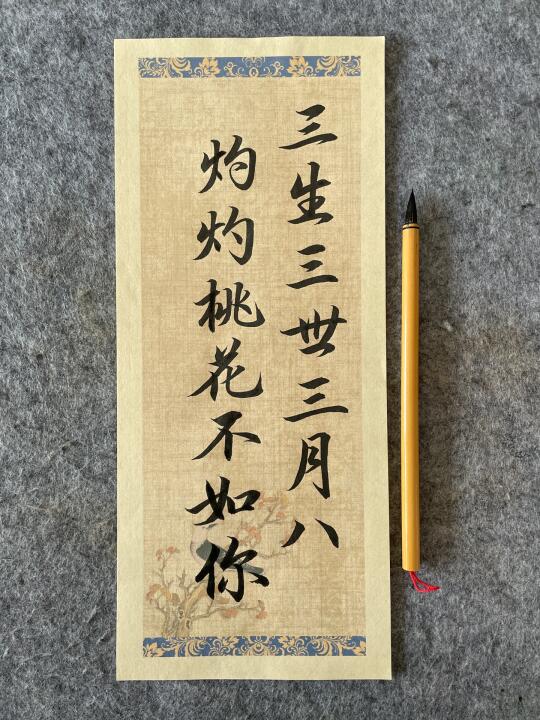 三生三世三月八
灼灼桃花不如你